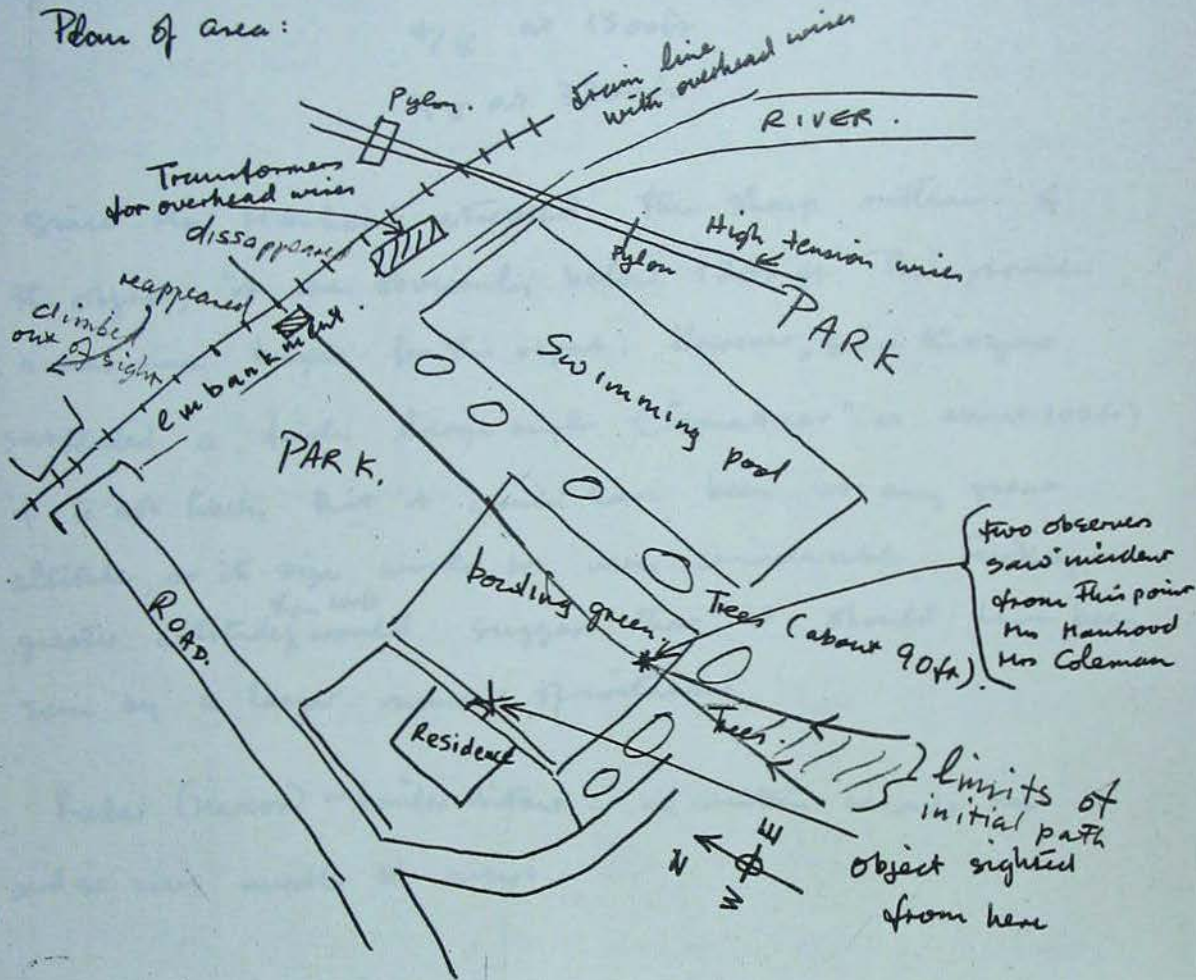 Plan of area:
Pylon.
train line
with overhead wires
RIVER.
Transformers
for overhead wires
dissappeared
reappeared
climbed
out of sight
embankment.
Pylon
High tension wires
PARK
Swimming pool
PARK.
ROAD.
bowling green.
Trees (about 90ft).
two observers
saw incident
from this point
Mrs
Mrs Coleman
Residence
Trees.
limits of
initial path
object sighted
from here
N
E
W